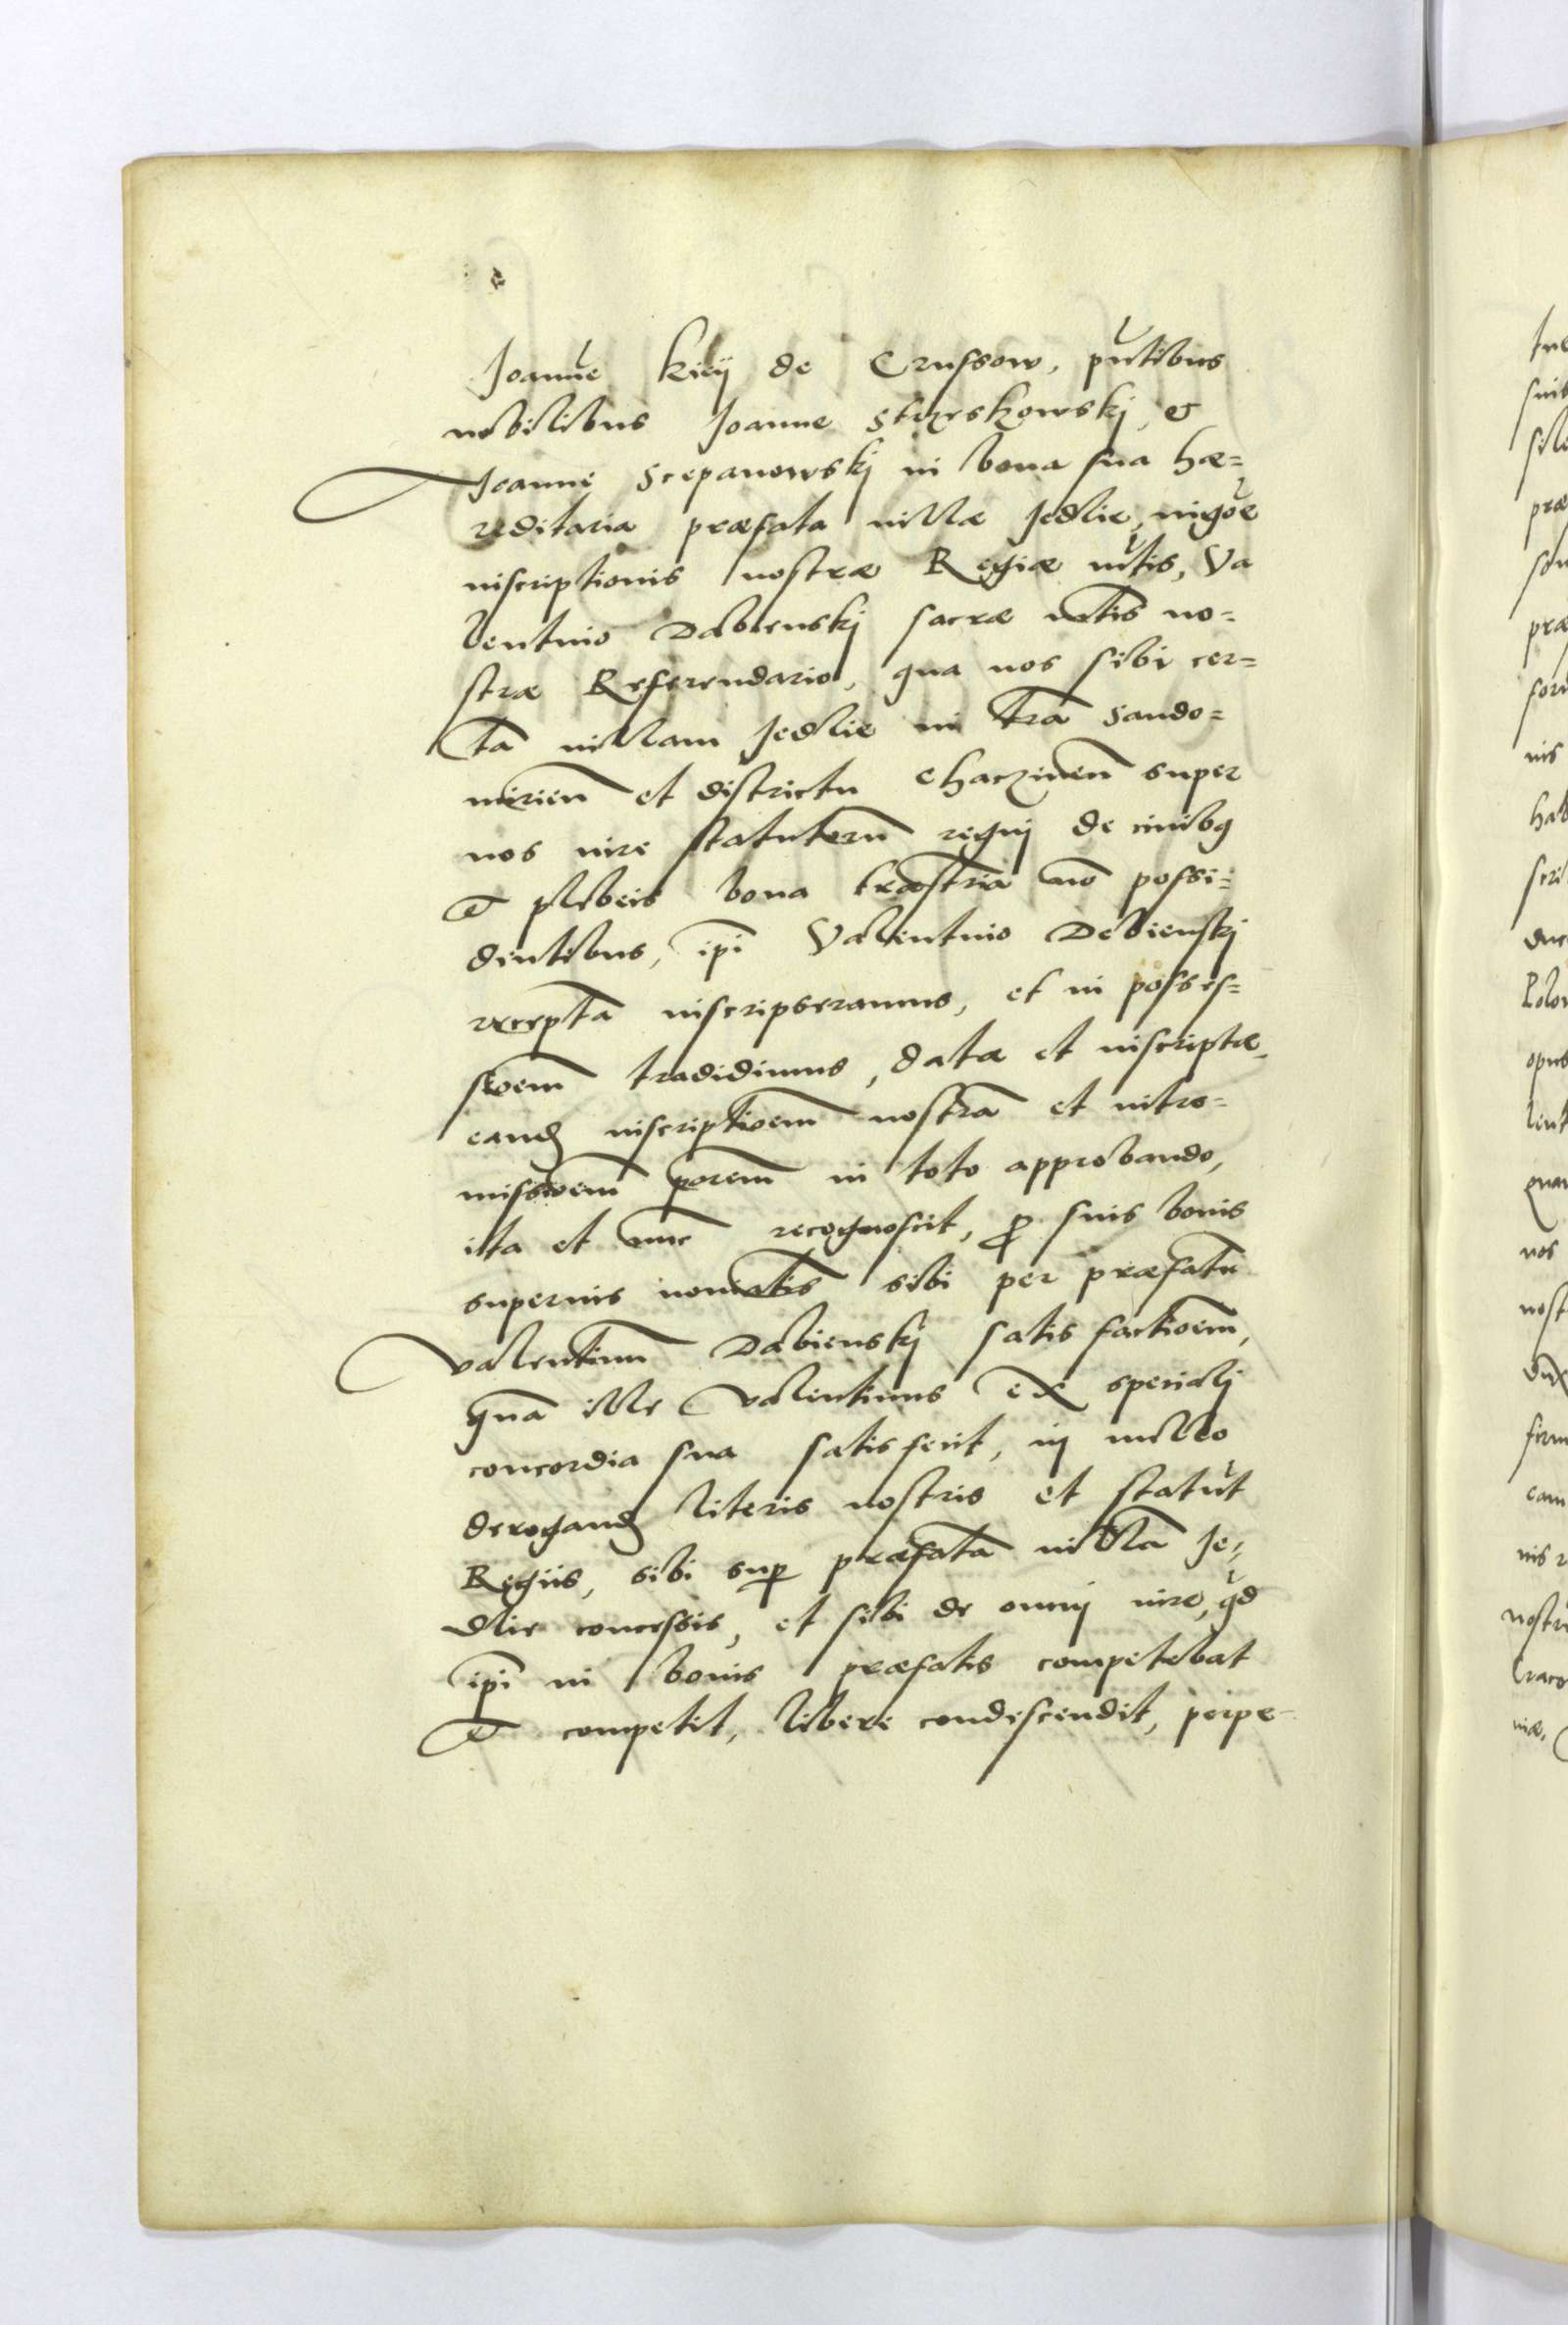 Joanne Kiey de Crussow, pntibus
nobilibus Joanne Stozrskowskj, et
Joanne Scepanowskj in bona sua hæ=
reditaria præfata villæ Jedlie, vigore
inscriptionis nostræ Regiæ mtis, Va
lentino Dabienskj sacræ mtis no=
stræ Referendario, qua nos sibi cer=
tã villam Jedlie in trã Sando=
mirieñ et districtu Chaczineñ super
nos iure statutorũ regnj de civibq
et plebeis bona træstria nõ possi=
dentibus, ipi Valentino Debienskj
receptã inscripseramus, et in posses=
sioem tradidimus, datæ et inscriptæ,
eandẽ inscriptioem nostrã et intro=
missioem porem in toto approbando,
ita et nunc recognoscit, pro suis bonis
supernis noiatis sibi per præfatũ
Valentinũ Dabienskj satis factioem,
quã ille Valentinus ex specialj
concordia sua satisfecit, in nullo
derogandõ literis nostris et statut
Regiis, sibi sup præfatã villã Je=
dlie concessis, et sibi de omnj iure, qd
ipi in bonis præfatis competebat
et competit, libere condescendit, perpe-